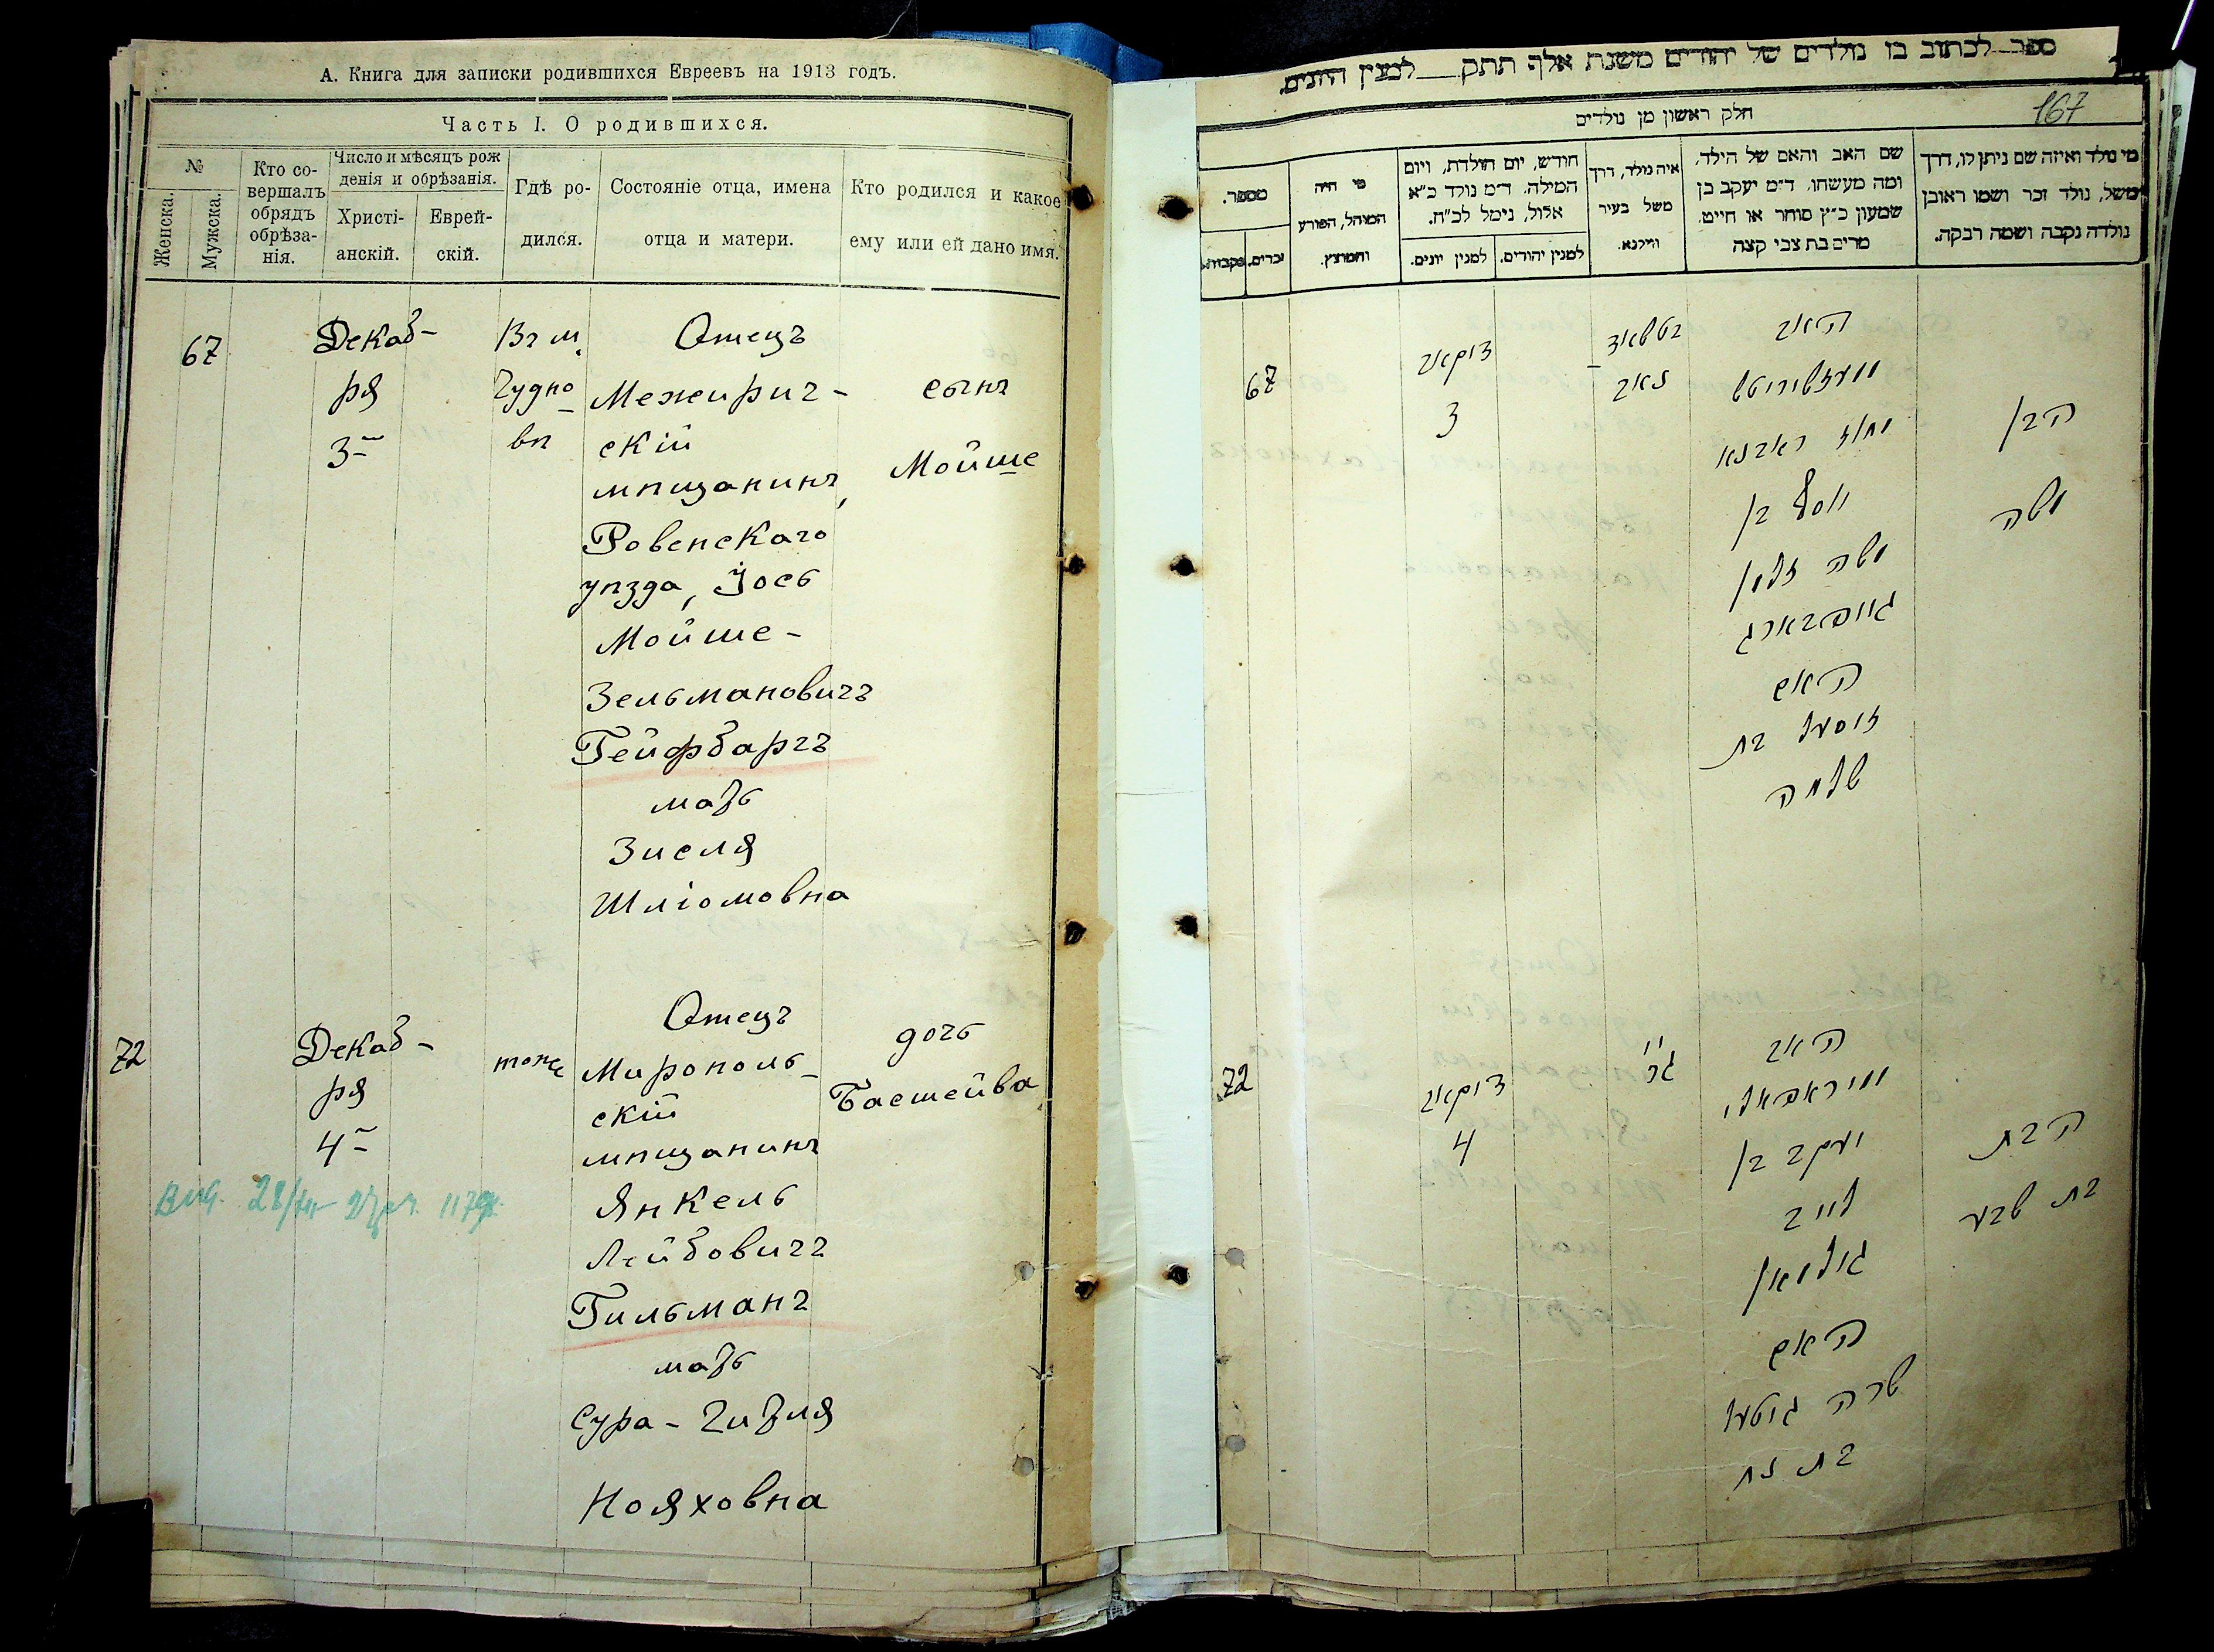 А. Книга для записки родившихся Евреевъ на 1913 годъ.
Часть I. О родившихся.
№
Женска.
Мужска.
Кто со-
вершалъ
обрядъ
обрѣза-
нія.
Число и мѣсяцъ рож
денія и обрѣзанія.
Христі-
анскій.
Еврей-
скій.
Гдѣ ро-
дился.
Состояніе отца, имена
отца и матери.
Кто родился и какое
ему или ей дано имя.
67
Декаб-
ря
3
Въ м.
Чудно
вѣ
Отецъ
Межирич-
скій
мѣщанинъ,
Ровенскаго
уѣзда, Іось
Мойше-
Зельмановичъ
Гейфбаргъ
мать
Зисля
Шліомовна
сынъ
Мойше
72
Декаб-
ря
4
тоже
Отецъ
Мирополь-
скій
мѣщанинъ
Янкель
Лейбовичъ
Гильманъ
мать
Сура-Гитля
Нояховна
дочь
Басшейва
ספר לכתוב בו נולדים של יהודים משנת אלף תתק למנין היונים.
167
חלק ראשון מן נולדים
מי נולד ואיזה שם ניתן לו, דרך
משל, נולד זכר ושמו ראובן
נולדה נקבה ושמה רבקה.
שם האב והאם של הילד,
ומה מעשהו. ד״מ יעקב בן
שמעון כ״ץ סוחר או חייט.
מרים בת צבי קצה
איה נולד, דרך
משל בעיר
ווילנא.
חודש, יום הולדת, ויום
המילה. ד״מ נולד כ״א
אלול, נימל לכ״ח.
למנין יהודים.
למנין יונים.
מי היה
המוהל, הפורע
והמוצץ.
מספר.
זכרים.
נקבות.
67
דיקאב
3
האב
יוסף בן
משה זלמן
גייפבארג
האם
זיסעל בת
שלמה
הבן
משה
72
דיקאב
4
האב
יעקב בן
לייב
גילמאן
האם
שרה גיטעל
בת נח
הבת
בת שבע